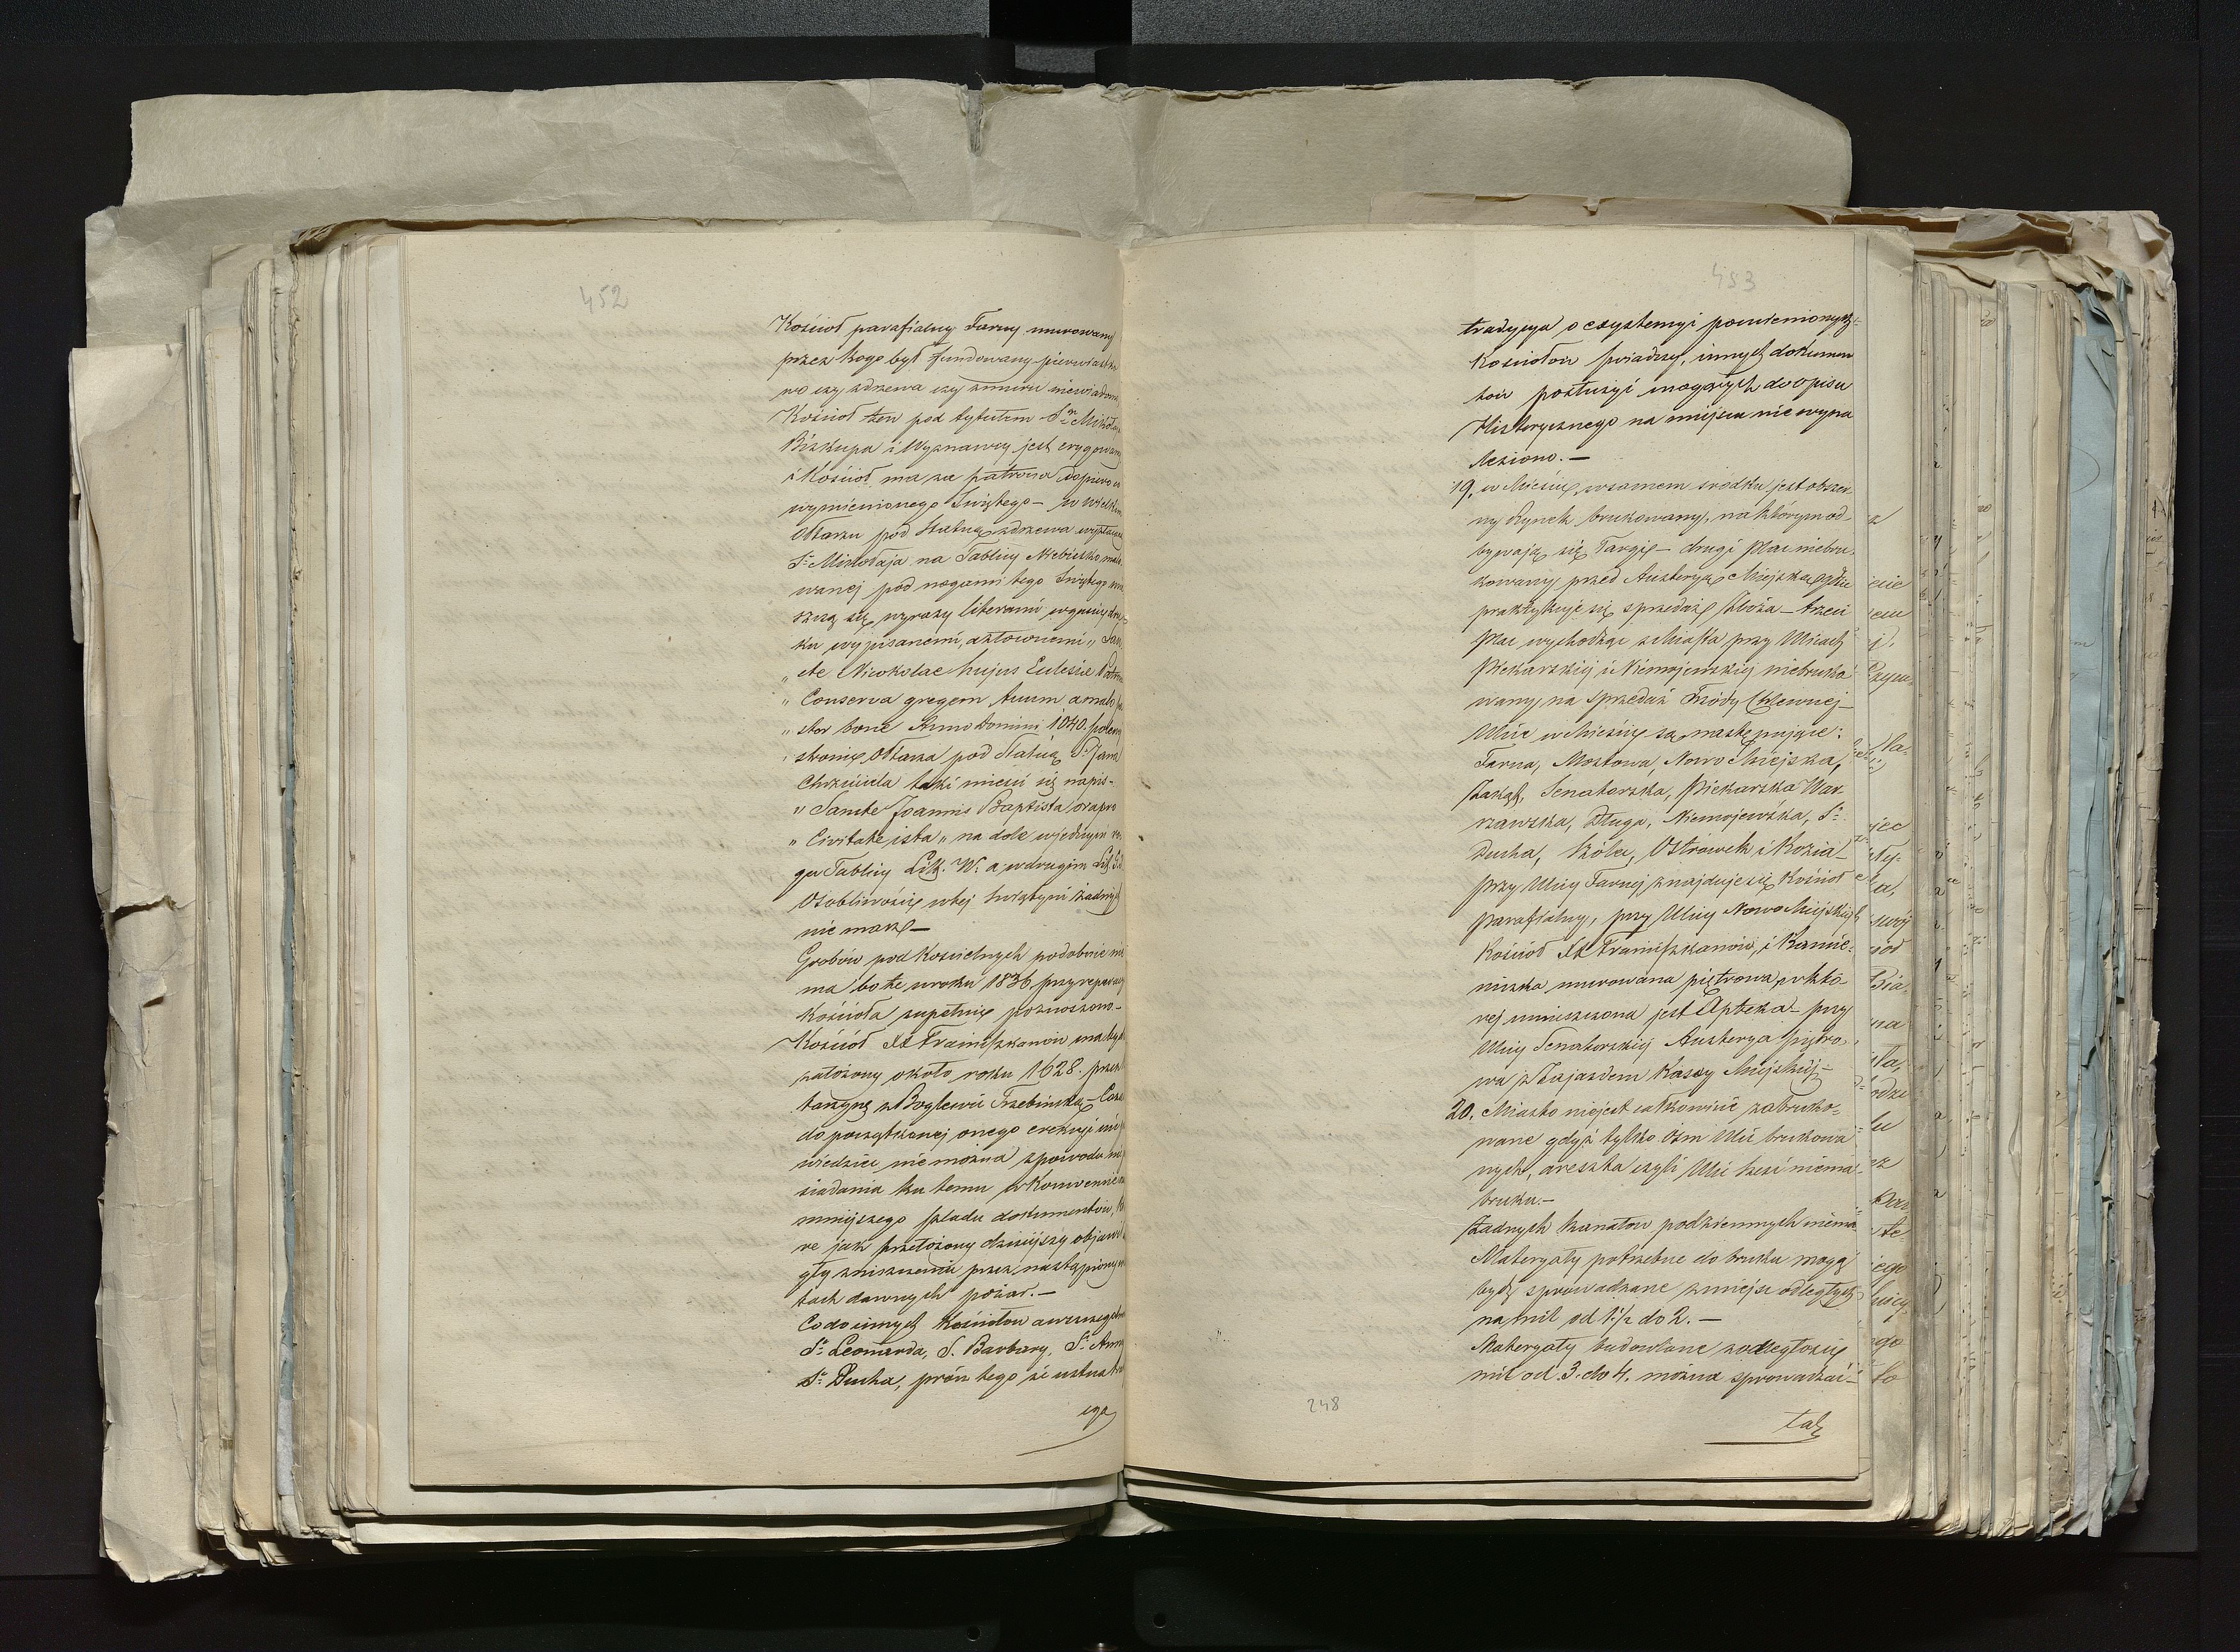 452
Kościoł parafialny Farny murowany
przez kogo był fundowany pierwiastko
wo czy zdrzewa czy zmuru niewiadomo
Kościoł ten pod tytułem Sgo Mikołaja
Biskupa i Wyznawcy jest erygowany
i Kościoł ma za patrona dopiero co
wymienionego Świętego – w wielkim
Ołtarzu pod Statuą zdrzewa
So Mikołaja na Tablicy Niebiesko malo
wanej pod nogami tego Świętego mie
szczą się wyrazy literami
ku wypisanemi, aztownemi „ San
„ cte Nicokolae hujus Eclesie Patron
„ Conserva gregem tuum amato pa
„ stor bone Anno Domini 1040. po lewej
stronie Ołtarza pod Statuą S. Jana
Chrzciciela taki mieści się napis –
„ Sancte Joannis Baptista ora pro
„ Civitate ista „ na dole wjednym ro
gu Tablicy Lit. W: a wdrugim Lit.
Osobliwości wtej Świątyni żadnych
nie masz –
Grobów podKościelnych podobnie nie
ma bo te wroku 1836. przy reparacyi
Kościoła zupełnie poznoszono –
Kościoł XX Franciszkanów ma być
założony około roku 1628. przez
tarzynę z Boglewic Trzebińską – Coza
do początkowej onego erekcyi nic
wiedzieć nie można zpowodu nie
siadania ku temu wKonwencie naj
mniejszego śladu dokumentów, któ
re jak przełożony dzisiejszy objawił
gły zniszczeniu przez nastąpiony w la
tach dawnych pożar. –
Co do innych Kościołow a wszczegolno
So Leonarda, S. Barbary, So Anny
So Ducha, prócz tego że ustna tra
cya
453
tradycya o exystencyi powienionych
Kościołow świadczy, innych dokumen
tow posłużyć mogących do opisu
Historycznego na miejscu nie wyna
leziono. –
19. w Mieście wsamem srodku jest obszer
ny Rynek brukowany, naktorym od=
bywają się Targi – drugi Plac niebru
kowany przed Austeryą Miejską gdzie
praktykuje się sprzedaż Zboża – trzeci
Plac wychodząc zMiasta przy Ulicach
Piekarskiej i Niemojewskiej niebruko
wany na sprzedaż Trzody Chlewnej –
Ulice w Mieście są następujące:
Farna, Mostowa, Nowo Miejska,
Zakąt, Senatorska, Piekarska War
szawska, Długa, Niemojewska, So
Ducha, Kólea, Ostrówek i Kozia –
przy Ulicy Farnej znajduje się Kościoł
parafialny, przy Ulicy Nowo Miejskiej
Kościoł XX Franciszkanów, i Kamie=
niczka murowana piętrowa, w któ=
rej umieszczona jest Apteka – przy
Ulicy Senatorskiej Austerya piętro=
wa z Zajazdem Kassy Miejskiej –
20. Miasto niejest całkowicie zabruko=
wane gdyż tylko Ośm Ulic brukowa
nych, areszta czyli Ulic sześć niema
bruku. –
Żadnych kanałow podziemnych niema
Materyały potrzebne do bruku mogą
być sprowadzane zmiejsc odległych
na mil od 1½ do 2. –
Materyały budowlane zodległości
mil od 3. do 4. można sprowadzać –
tak
248